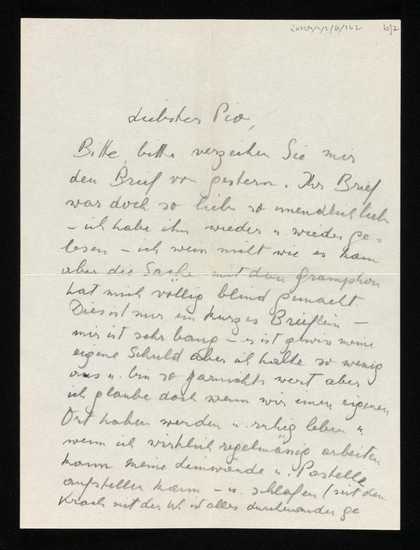 Liebster Pio,
Bitte, bitte verzeihen Sie mir
den Brief von gestern. Ihr Brief
war doch so lieb so unendlich lieb
– ich habe ihn wieder u. wieder ge-
lesen – ich weiss nicht wie es kam
aber die Sache mit dem Gramophon
hat mich völlig blind gemacht
Dies ist nur ein kurzes Brieflein –
mir ist sehr bang – es ist gewiss meine
eigene Schuld aber ich halte so wenig
aus u. bin so garnichts wert aber
ich glaube doch wenn wir einen eigenen
Ort haben werden u. ruhig leben u
wenn ich wirklich regelmässig arbeiten
kann meine u. Pastelle
aufstellen kann – u. schlafen (seit dem
Krach mit der ist alles durcheinander ge